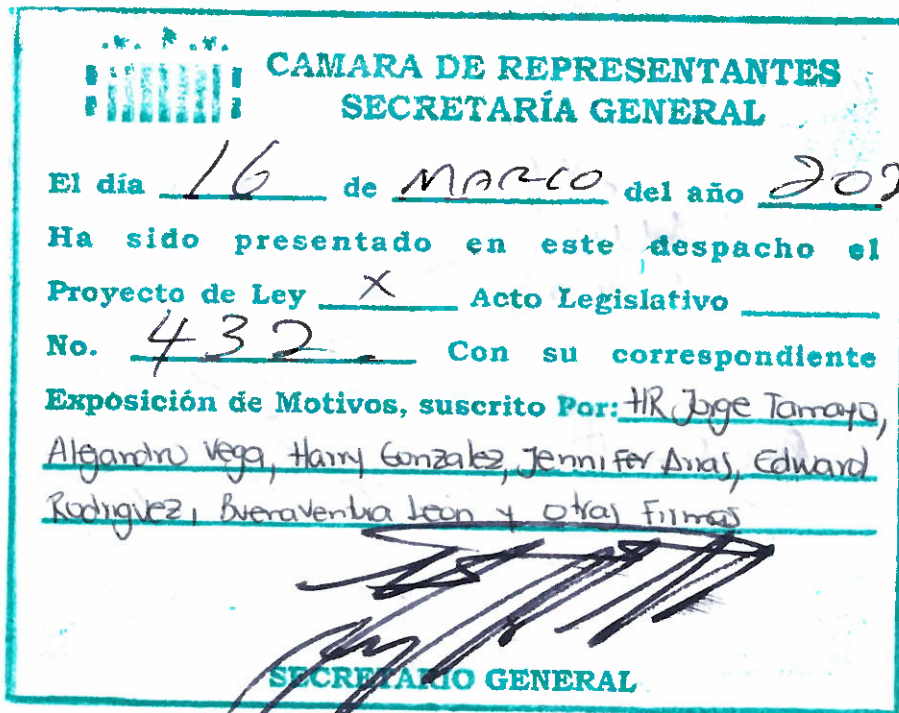 CAMARA DE REPRESENTANTES
SECRETARÍA GENERAL
El día 16 de MARZO del año 202
Ha sido presentado en este despacho el
Proyecto de Ley X Acto Legislativo
No. 432. Con su correspondiente
Exposición de Motivos, suscrito Por: HR Jorge Tamayo,
Alejandro Vega, Harry Gonzalez, Jennifer Arias, Edward
Rodriguez, Buenaventura León y otras Firmas
SECRETARIO GENERAL